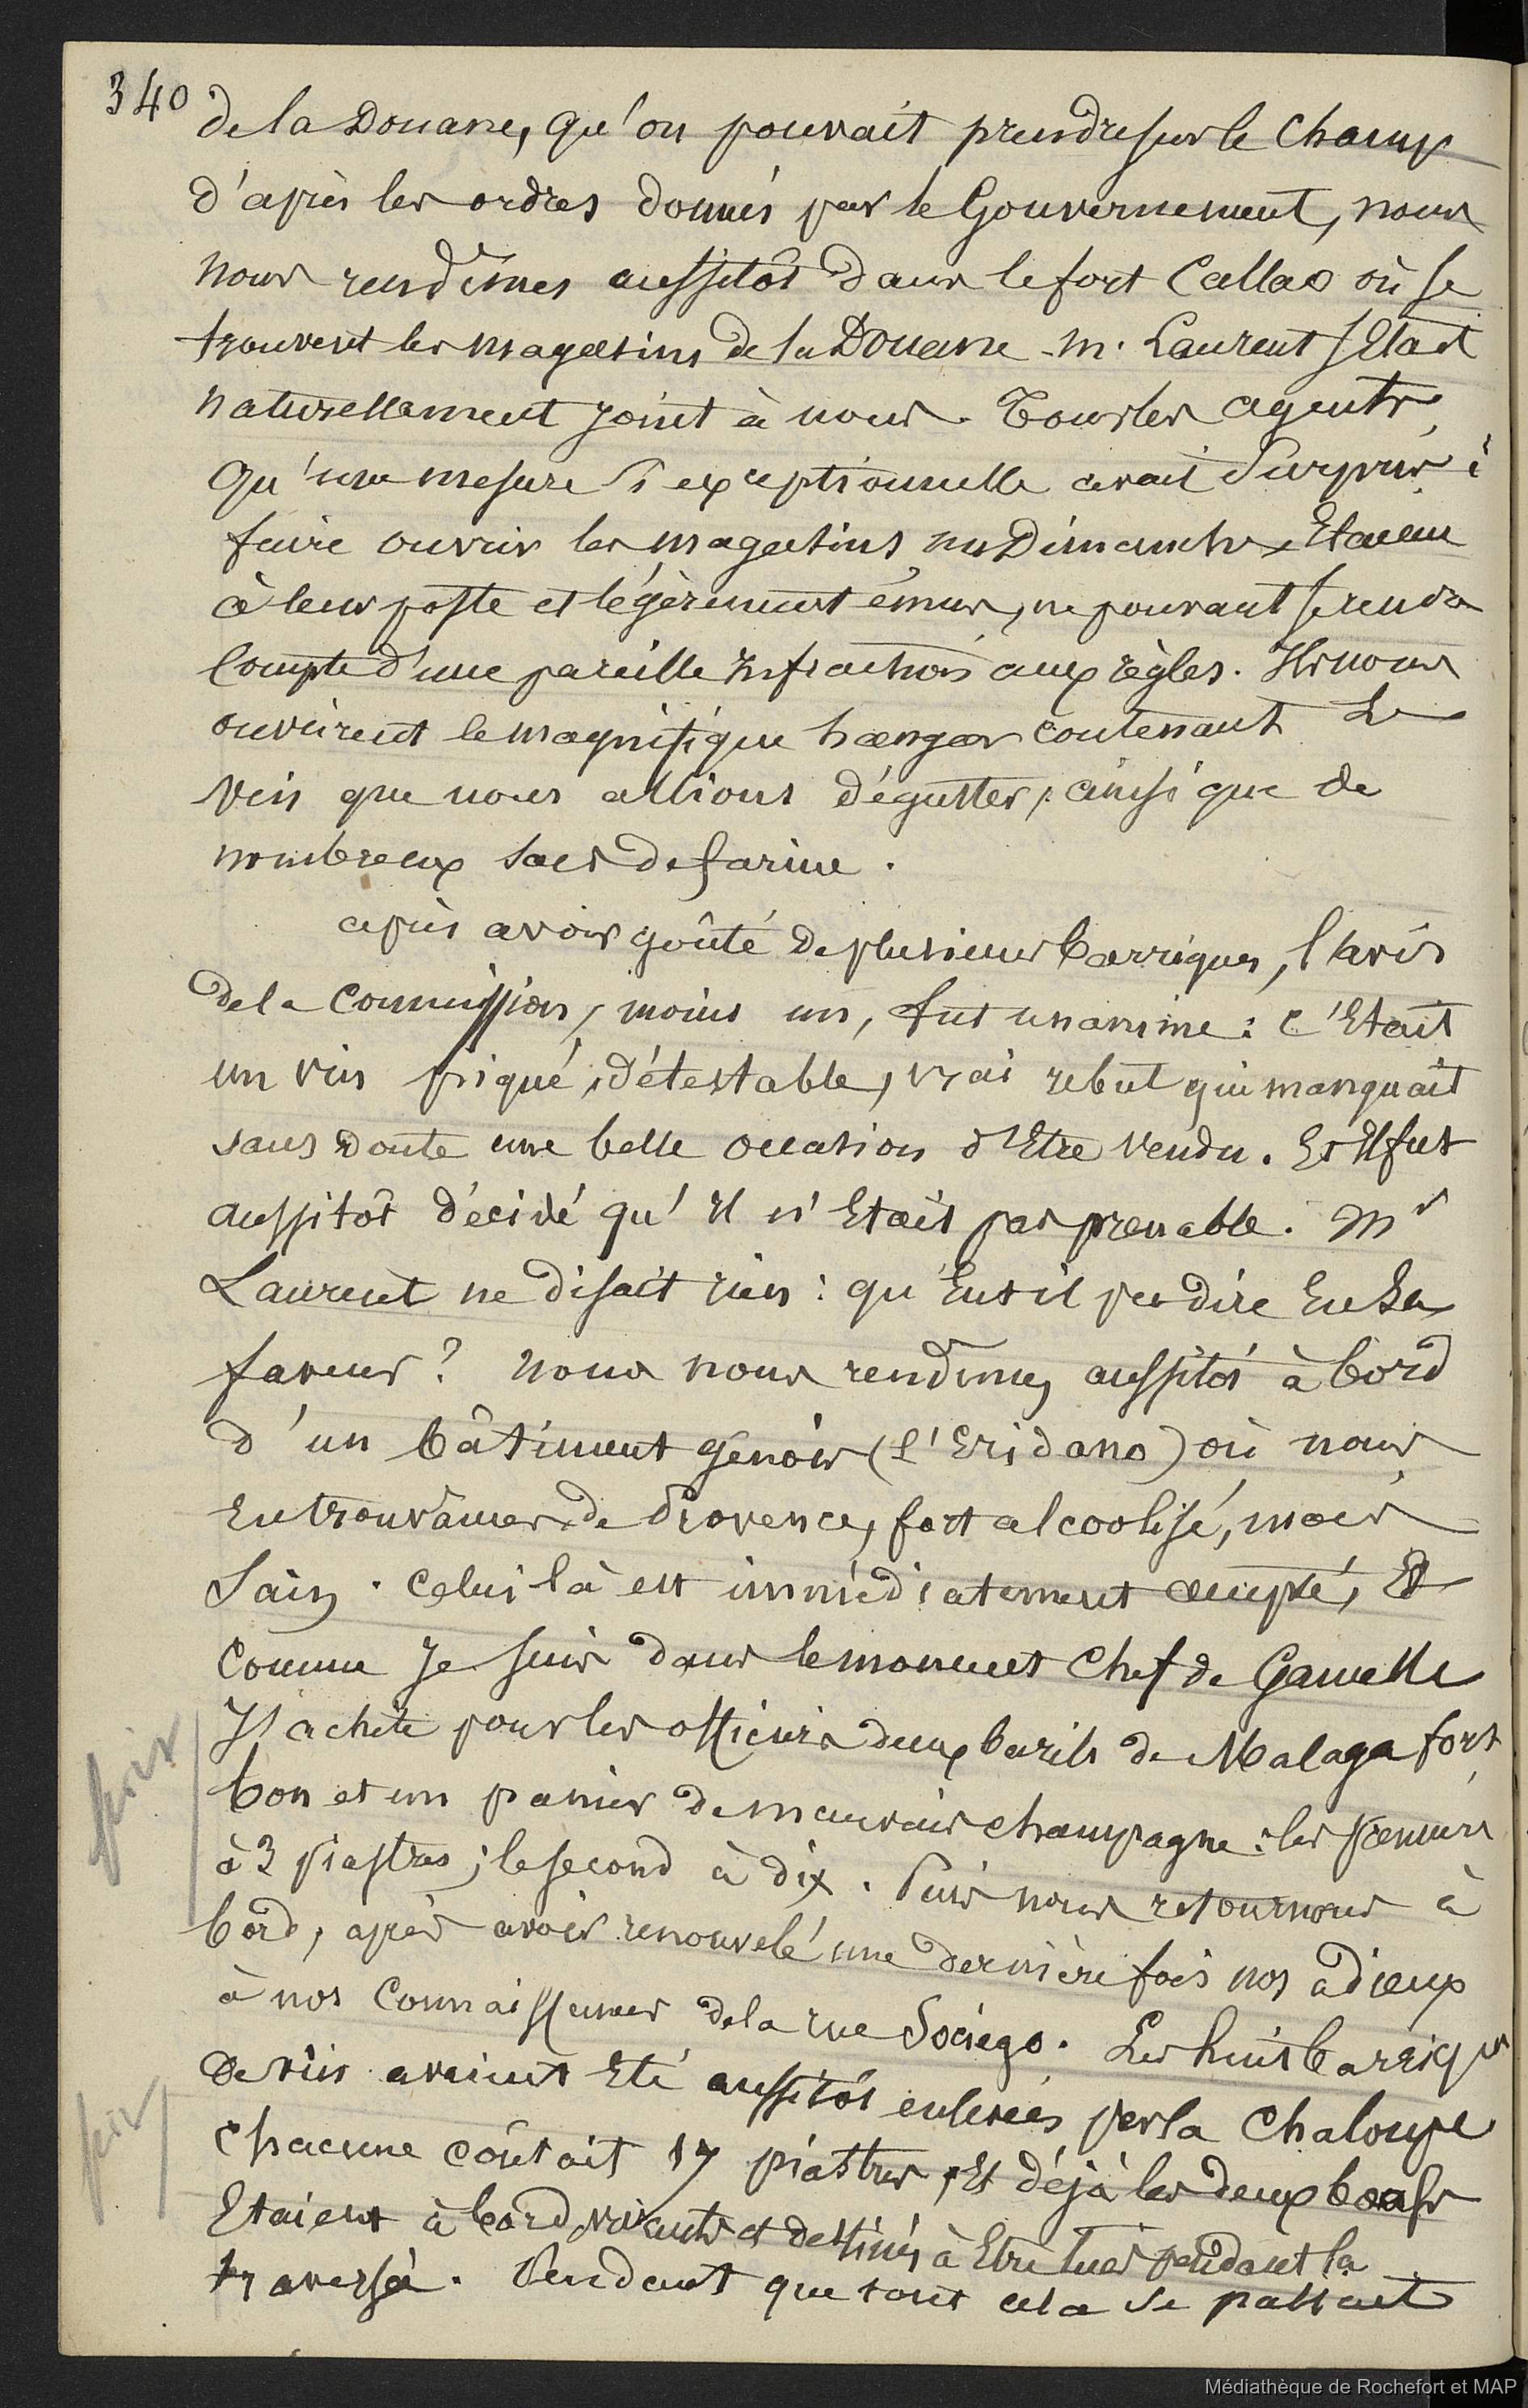 340
de la Douane, qu'on pouvait prendre sur le champ
d'après les ordres donnés par le Gouvernement, nous
nous rendîmes aussitôt dans le fort Callao où se
trouvent les magasins de la Douane. M. Laurent s'Etait
naturellement joint à nous. Tous les agents,
qu'une mesure si exceptionnelle avait surpris à
faire ouvrir les magasins un Dimanche, Etaient
à leur poste et légèrement émus, ne pouvant se rendre
compte d'une pareille infraction aux règles. Ils nous
ouvrirent le magnifique hangar contenant le
vin que nous allions déguster, ainsi que de
nombreux sacs de farine.
après avoir goûté de plusieurs barriques, l'avis
de la Commission, moins un, fut unanime : c'Etait
un vin piqué, détestable, vrai rebut qui manquait
sans doute une belle occasion d'Etre vendu. Et Il fut
aussitôt décidé qu'Il n'Etait pas prenable. Mr
Laurent ne disait rien : qu'Eut il pu dire En sa
faveur ? Nous nous rendîmes aussitôt à bord
d'un bâtiment génois (l'Eridano) où nous
En trouvâmes de Provence, fort alcoolisé, mais
sain. Celui là est immédiatement accepté, Et
comme Je suis dans le moment Chef de Gamelle
J'achète pour les officiers deux barils de Malaga fort
bon et un panier de mauvais champagne : les premiers
à 3 piastres ; le second à dix. Puis nous retournons à
bord, après avoir renouvelé une dernière fois nos adieux
à nos Connaissances de la rue Sociego. Les huit barriques
de vin avaient Eté aussitôt enlevées par la Chaloupe
Chacune coûtait 17 piastres, Et déjà les deux bœufs
Etaient à bord, vivants et destinés à Etre tués pendant la
traversée. Pendant que tout cela se passait
Médiathèque de Rochefort et MAP